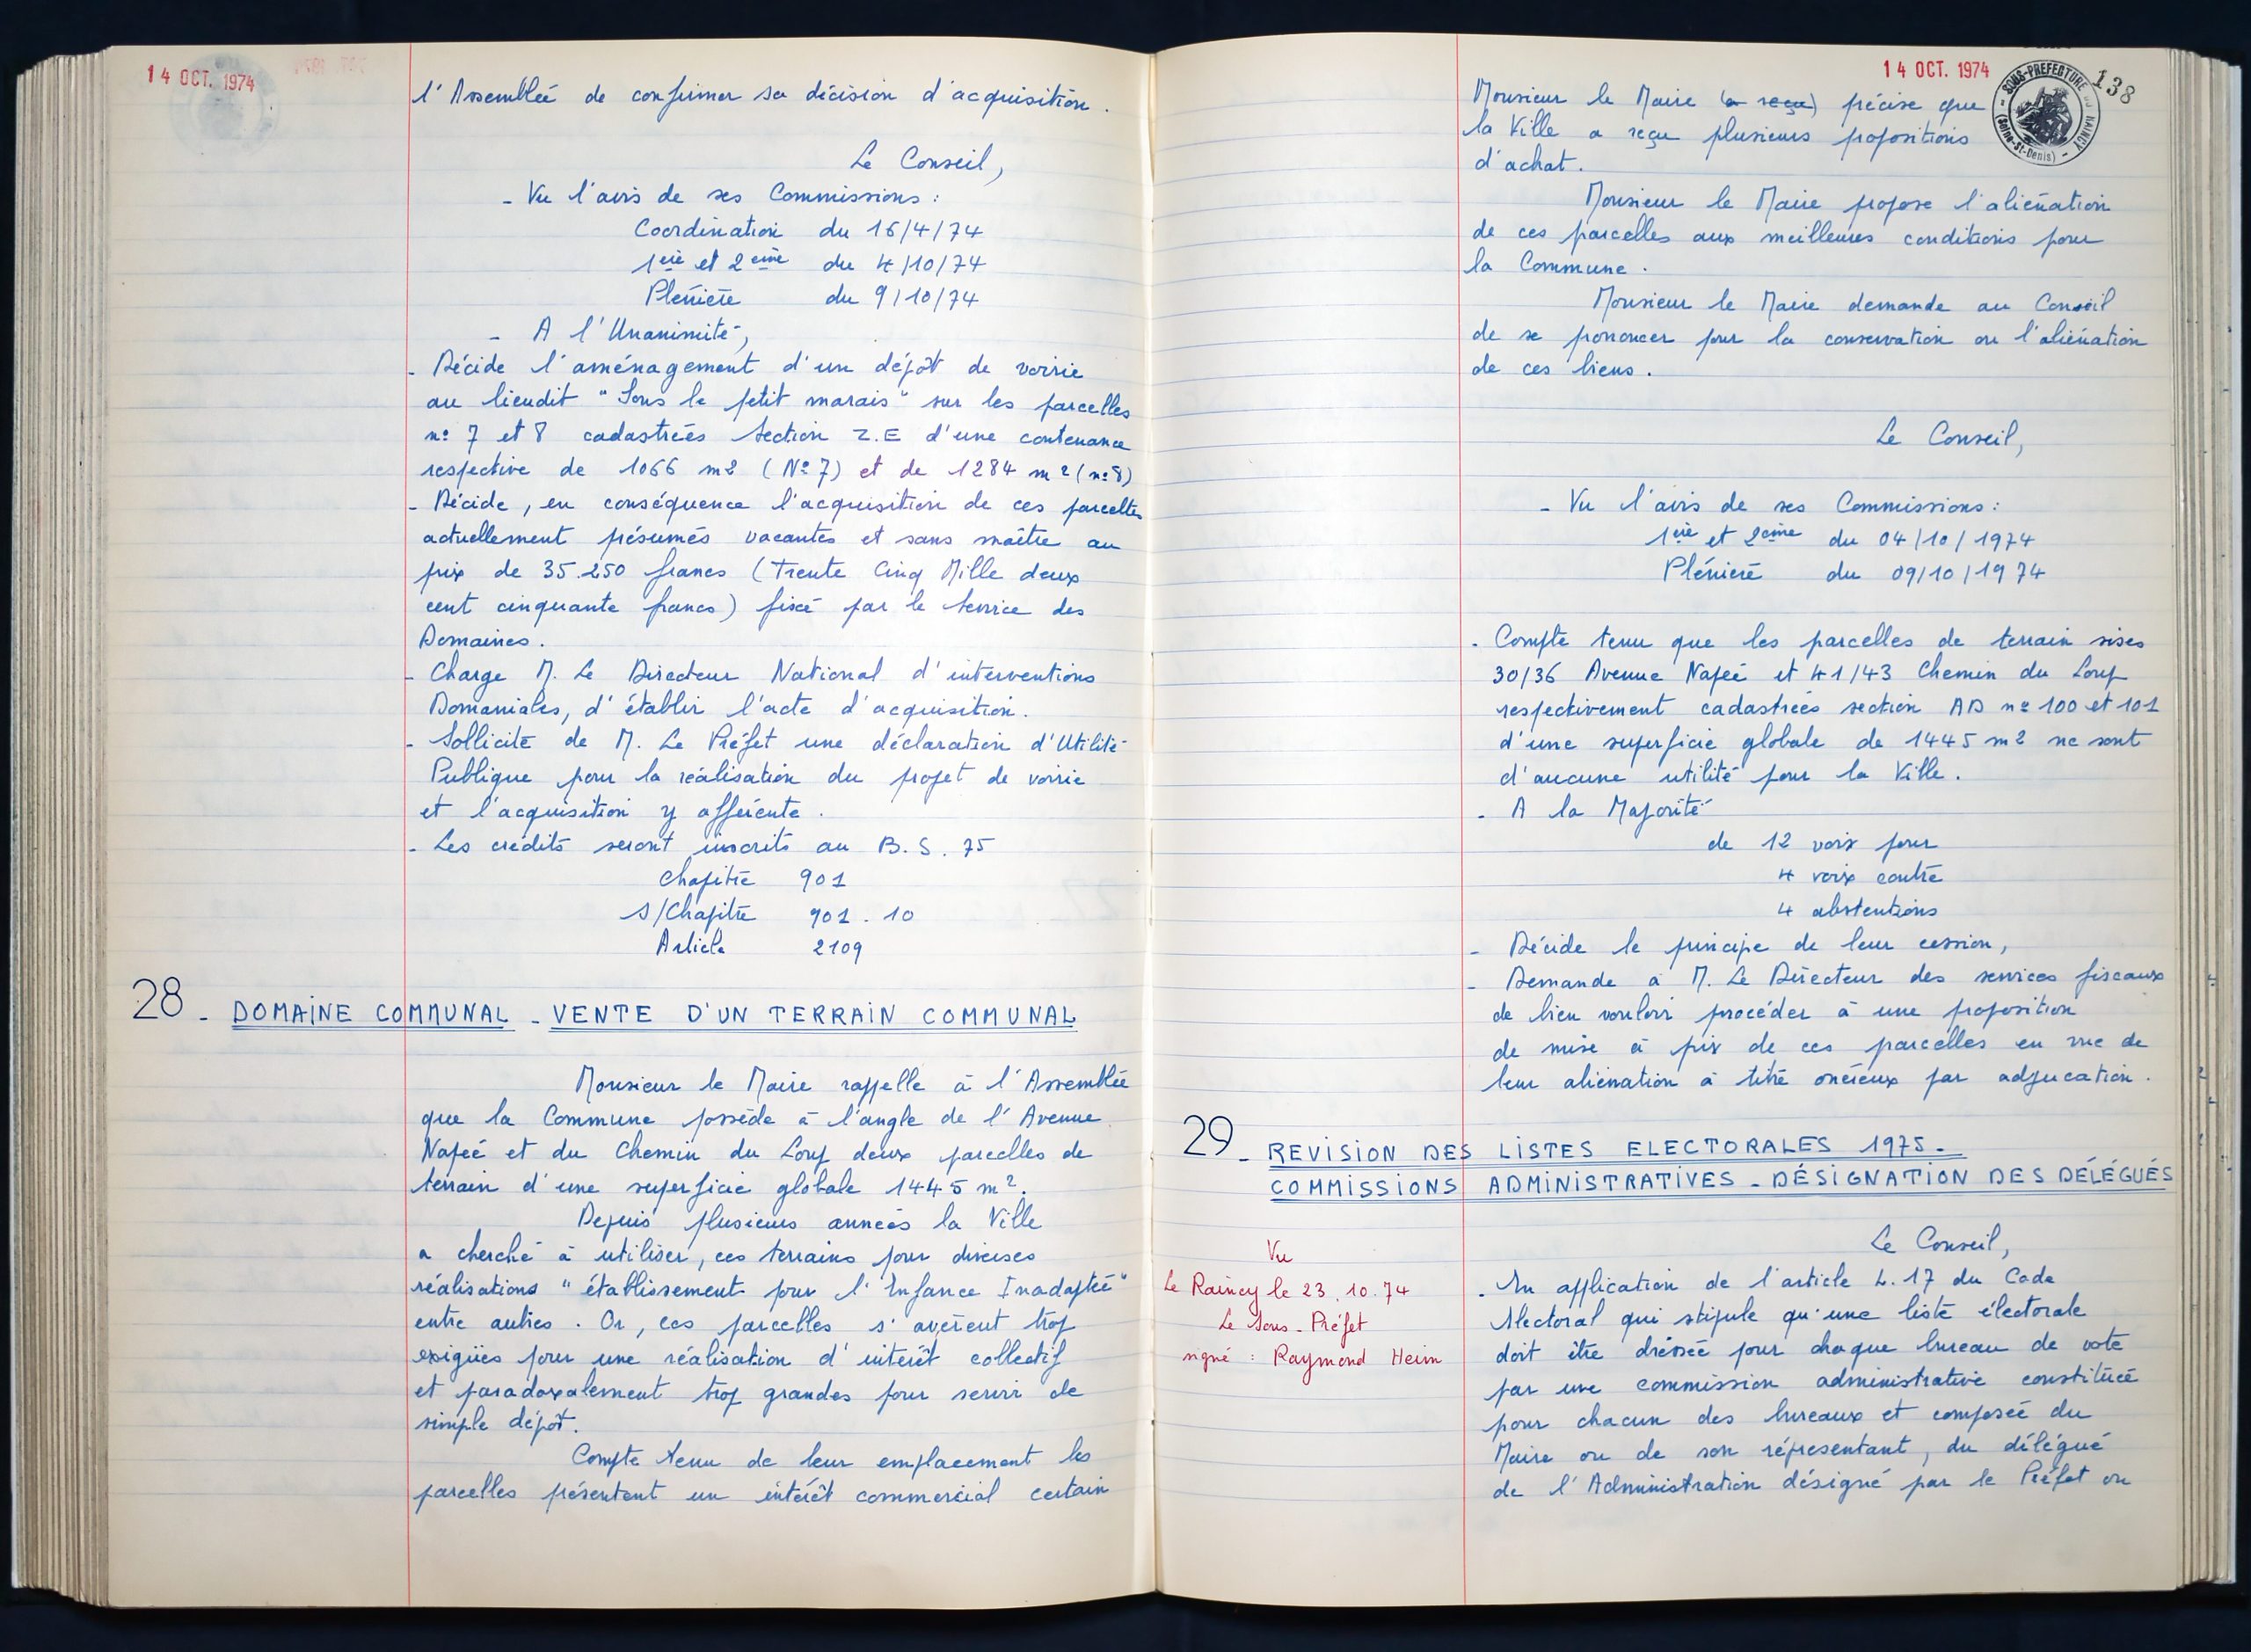 14 OCT. 1974
l'Assemblée de confirmer sa décision d'acquisition.
Le Conseil,
- Vu l'avis de ses Commissions :
Coordination du 16/4/74
1ère et 2ème du 4/10/74
Plénière du 9/10/74
- A l'Unanimité,
- Décide l'aménagement d'un dépôt de voirie
au lieudit "Sous le petit marais" sur les parcelles
n° 7 et 8 cadastrées Section Z.E d'une contenance
respective de 1066 m2 (N° 7) et de 1284 m2 (n° 8)
- Décide, en conséquence l'acquisition de ces parcelles
actuellement présumés vacantes et sans maître au
prix de 35.250 francs (Trente Cinq Mille deux
cent cinquante francs) fixé par le Service des
Domaines.
- Charge M. Le Directeur National d'interventions
Domaniales, d'établir l'acte d'acquisition.
- Sollicite de M. Le Préfet une déclaration d'Utilité
Publique pour la réalisation du projet de voirie
et l'acquisition y afférente.
- Les crédits seront inscrits au B.S. 75
Chapitre 901
S/Chapitre 901.10
Article 2109
28 - DOMAINE COMMUNAL - VENTE D'UN TERRAIN COMMUNAL
Monsieur le Maire rappelle à l'Assemblée
que la Commune possède à l'angle de l'Avenue
Nafée et du Chemin du Loup deux parcelles de
terrain d'une superficie globale 1445 m2.
Depuis plusieurs années la Ville
a cherché à utiliser, ces terrains pour diverses
réalisations "établissement pour l'Enfance Inadaptée"
entre autres. Or, ces parcelles s'avèrent trop
exigües pour une réalisation d'intérêt collectif
et paradoxalement trop grandes pour servir de
simple dépôt.
Compte tenu de leur emplacement les
parcelles présentent un intérêt commercial certain
14 OCT. 1974
SOUS-PREFECTURE DU RAINCY
(Seine-St-Denis)
138
Monsieur le Maire (a reçu) précise que
la Ville a reçu plusieurs propositions
d'achat.
Monsieur le Maire propose l'aliénation
de ces parcelles aux meilleures conditions pour
la Commune.
Monsieur le Maire demande au Conseil
de se prononcer pour la conservation ou l'aliénation
de ces biens.
Le Conseil,
- Vu l'avis de ses Commissions :
1ère et 2ème du 04/10/1974
Plénière du 09/10/1974
- Compte tenu que les parcelles de terrain sises
30/36 Avenue Nafée et 41/43 Chemin du Loup
respectivement cadastrées section AD n° 100 et 101
d'une superficie globale de 1445 m2 ne sont
d'aucune utilité pour la Ville.
- A la Majorité
de 12 voix pour
4 voix contre
4 abstentions
- Décide le principe de leur cession,
- Demande à M. Le Directeur des services fiscaux
de bien vouloir procéder à une proposition
de mise à prix de ces parcelles en vue de
leur aliénation à titre onéreux par adjucation.
29 - REVISION DES LISTES ELECTORALES 1975 -
COMMISSIONS ADMINISTRATIVES - DÉSIGNATION DES DÉLÉGUÉS
Vu
Le Raincy le 23.10.74
Le Sous-Préfet
signé : Raymond Heim
Le Conseil,
- En application de l'article L.17 du Code
Electoral qui stipule qu'une liste électorale
doit être dressée pour chaque bureau de vote
par une commission administrative constituée
pour chacun des bureaux et composée du
Maire ou de son répresentant, du délégué
de l'Administration désigné par le Préfet ou